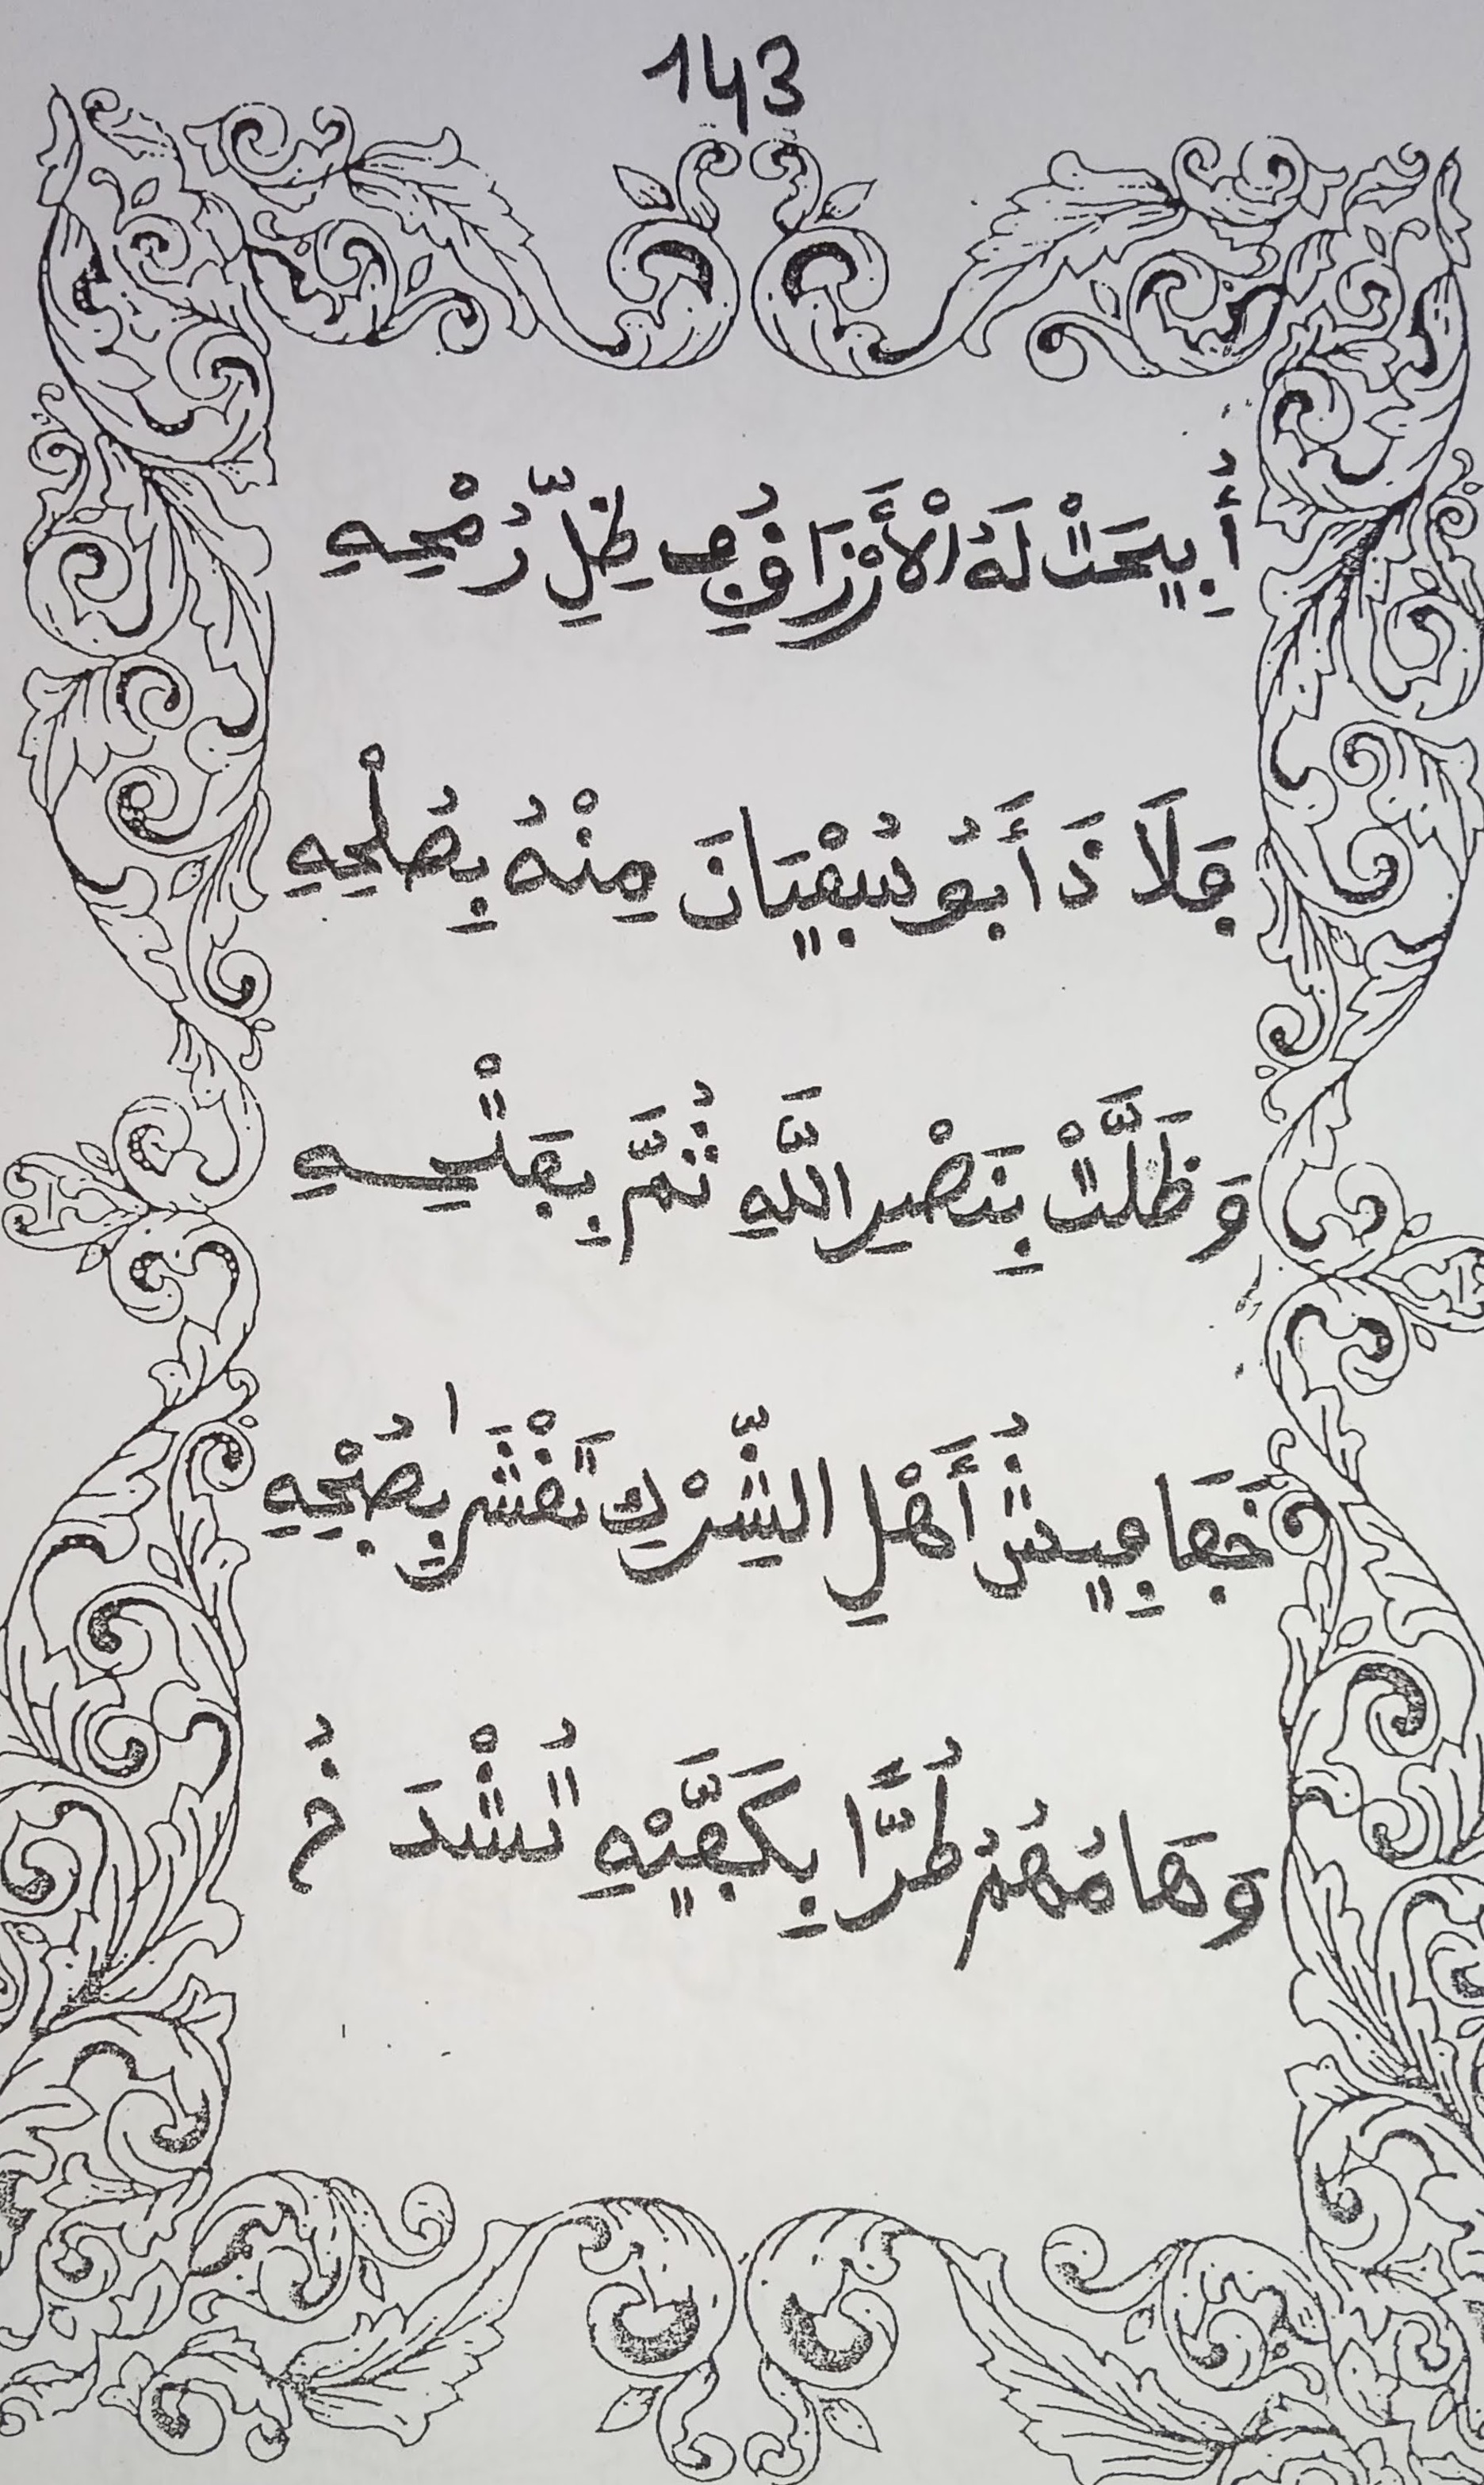 143
أُبِيحَتْ لَهُ الْأَرْزَاقُ فِي ظِلِّ رُمْحِهِ
فَلَاذَ أَبُو سُفْيَانَ مِنْهُ بِصُلْحِهِ
وَظَلَّتْ بِنَصْرِ اللَّهِ ثُمَّ بِفَتْحِهِ
خَفَافِيشُ أَهْلِ الشِّرْكِ تَعْشَىٰ بِصُبْحِهِ
وَهَامُهُمُ طُرًّا بِكَفَّيْهِ تُشْدَخُ